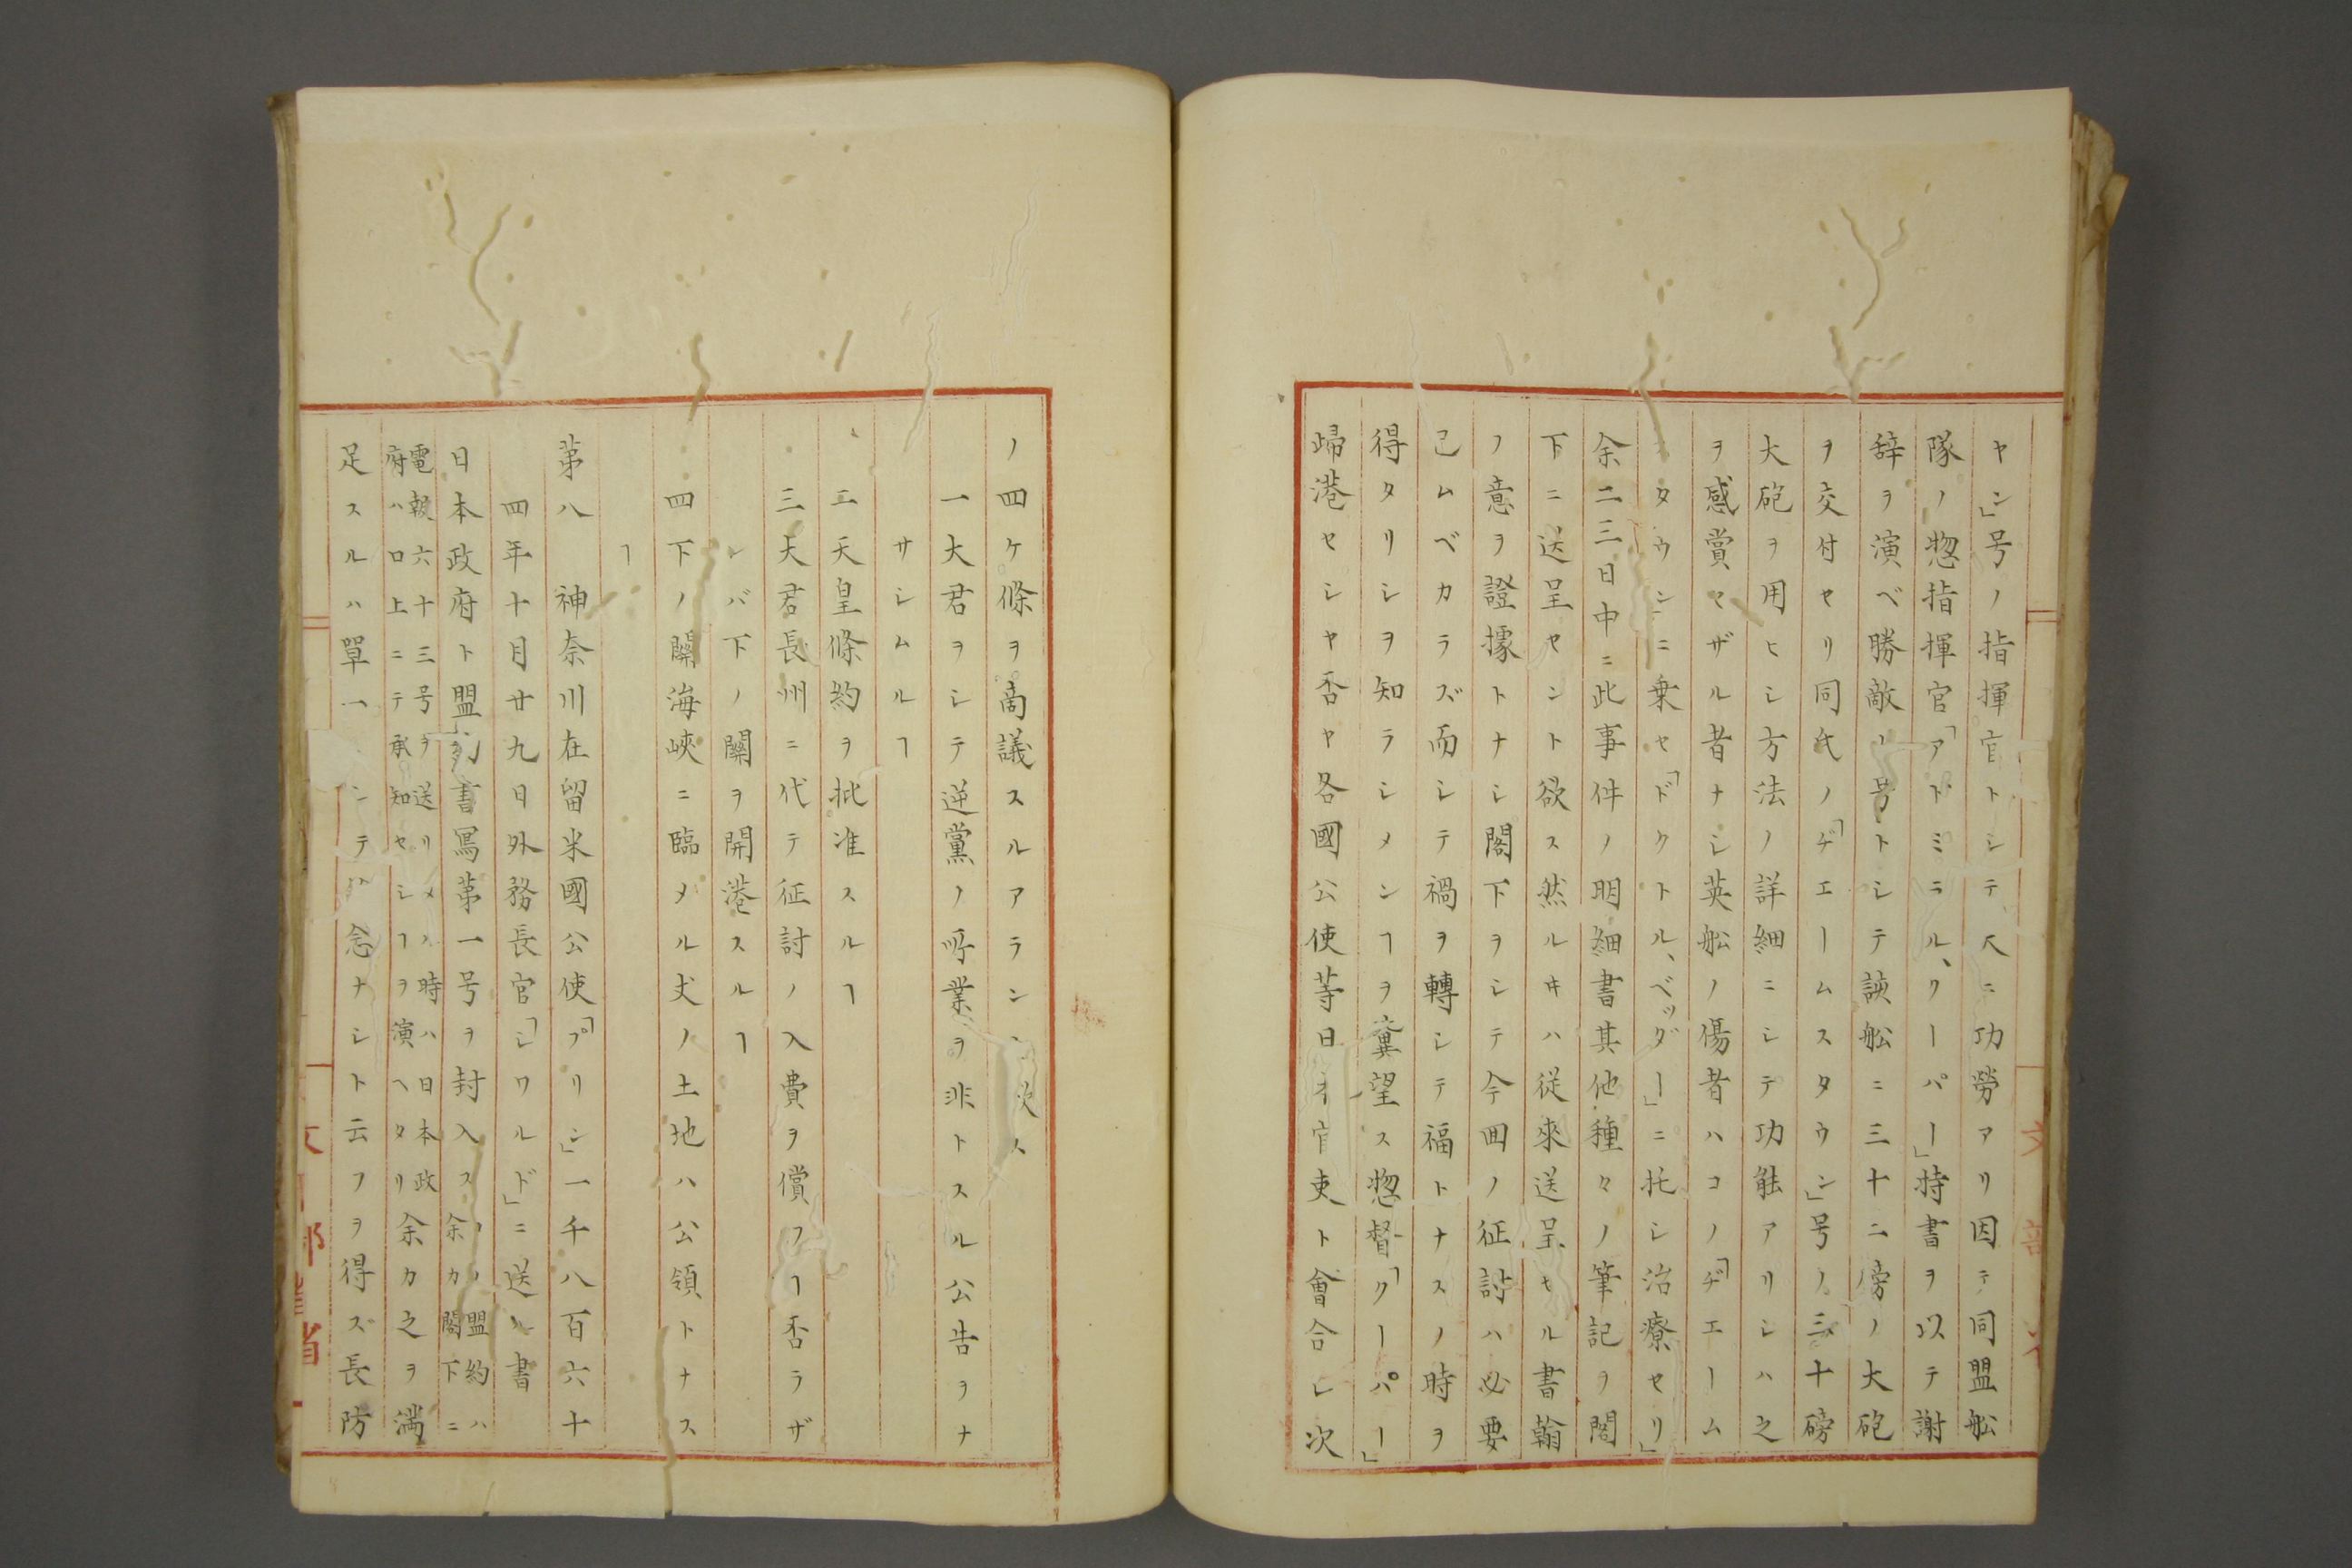 ヤン」号ノ指揮官トシテ大ニ功勞アリ因テ同盟舩
隊ノ惣指揮官「アドミラル、クーパー」特書ヲ以テ謝
辞ヲ演ベ勝敵ノ号トシテ該舩ニ三十二磅ノ大砲
ヲ交付セリ同氏ノ「ヂエームスタウン」号ノ三十磅
大砲ヲ用ヒシ方法ノ詳細ニシテ功能アリシハ之
ヲ感賞セザル者ナシ英舩ノ傷者ハコノ「ヂエーム
スタウン」ニ乗セ「ドクトル、ベッダー」ニ托シ治療セリ」
余二三日中ニ此事件ノ明細書其他種々ノ筆記ヲ閣
下ニ送呈セント欲ス然ルヰハ従來送呈セル書翰
ノ意ヲ證據トナシ閣下ヲシテ今回ノ征討ハ必要
己ムベカラズ而シテ禍ヲ轉シテ福トナスノ時ヲ
得タリシヲ知ラシメンヿヲ糞望ス惣督「クーパー」
歸港セシヤ否ヤ各國公使等日本官吏ト會合シ次
ノ四ケ條ヲ商議スルアラン 次ハ
一大君ヲシテ逆黨ノ所業ヲ非トスル公告ヲナ
サシムルヿ
二天皇條約ヲ批准スルヿ
三大君長州ニ代テ征討ノ入費ヲ償フヿ否ラザ
レバ下ノ關ヲ開港スルヿ
四下ノ關海峽ニ臨タル丈ノ土地ハ公領トナス
ヿ
第八 神奈川在留米國公使「プリン」一千八百六十
四年十月廿九日外務長官「シワルド」ニ送ル書
日本政府ト盟約書寫第一号ヲ封入ス 盟約ハ余カ閣下ニ
電報六十三号ヲ送リ ノ時ハ日本政府ハ口上ニテ承知セシヿヲ演ヘタリ余カ之ヲ満
足スルハ單一 ンテ 念ナシト云フヲ得ズ長防
文部省